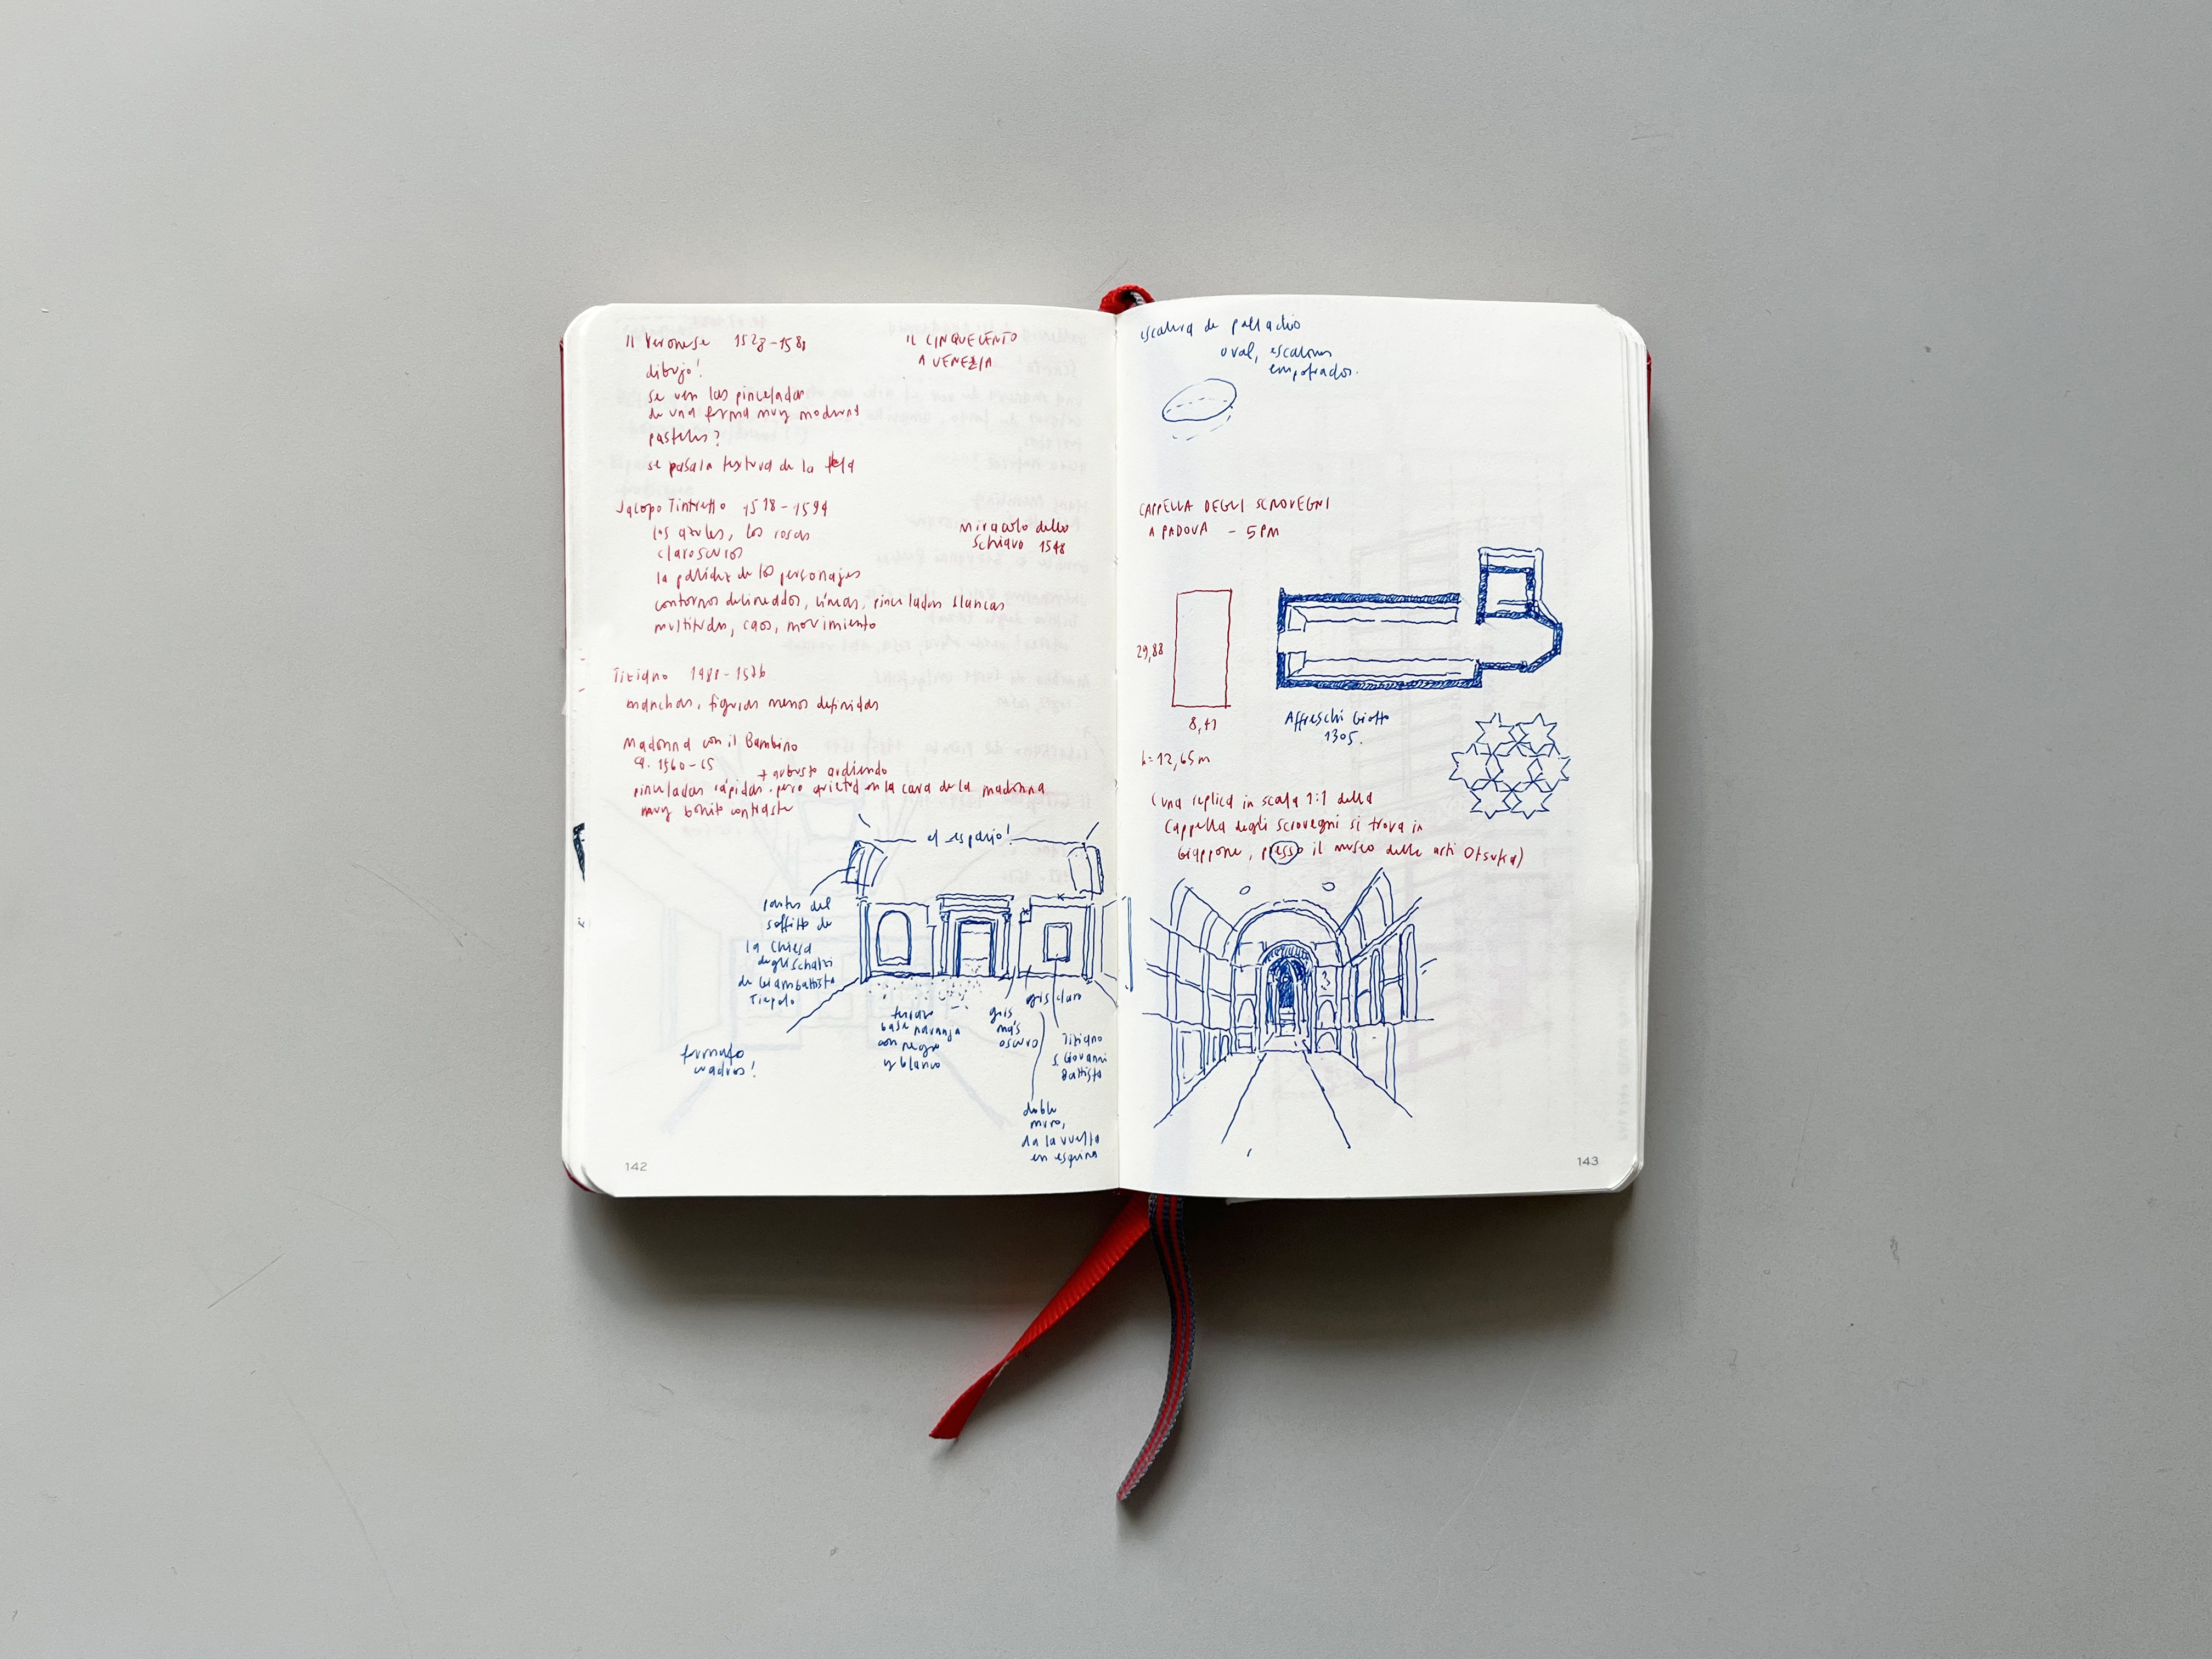 Il Veronese 1528-1588
dibujo!
se ven las pinceladas
de una forma muy moderna
pasteles?
se pasa la textura de la tela
IL CINQUECENTO
A VENEZIA
Jacopo Tintretto 1518-1594
los azules, los rosas
claroscuros
la palidez de los personajes
contornos delineados, líneas, pinceladas blancas
multitudes, caos, movimiento
Miracolo dello
Schiavo 1548
Tiziano 1488-1576
manchas, figuras menos definidas
Madonna con il Bambino
ca. 1560-65
+ arbusto ardiendo
pinceladas rápidas, pero quietud en la cara de la madonna
muy bonito contraste
el espacio!
partes del
soffitto de
la Chiesa
degli Scalzi
de Giambattista
Tiepolo
formato
cuadros!
terrazo
base naranja
con negro
y blanco
gris
más
oscuro
gris claro
Tiziano
S. Giovanni
Battista
doble
muro,
da la vuelta
en esquina
142
escalera de palladio
oval, escalones
empotrados.
CAPPELLA DEGLI SCROVEGNI
A PADOVA - 5PM
29,88
8,41
h=12,65m
Affreschi Giotto
1305.
(una replica in scala 1:1 della
Cappella degli scrovegni si trova in
Giappone, presso il museo delle arti Otsuka)
143